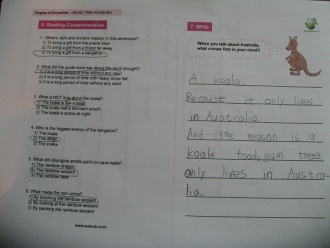 6. Reading Comprehension
1. What's Jack and Annie's mission in this adventure?
1) To bring a gift from the prairie blue
2) To bring a gift from a forest far away
3) To bring a gift from a kangaroo
2. What did the guide book say about the drought?
1) It is a long period of time without any rain
2) It is a long period of time with heavy snow fall
3) It is a short period of time without any rain
3. What is NOT true about the koala?
1) The koala is like a bear
2) The koala has a stomach pouch
3) The koala is active at night
4. Who is the biggest enemy of the kangaroo?
1) The koala
2) The dingo
3) The snake
5. What did Aborigine artists paint on cave walls?
1) The rainbow dragon
2) The rainbow serpent
3) The rainbow bear
6. What made the rain come?
1) By touching the rainbow serpent
2) By looking the rainbow serpent
3) By painting the rainbow serpent
7. Write
When you talk about Australia,
what comes first to your mind?
A koala.
Because it only lives
in Australia
And it's reason is a
koala food, gum tree
only lives in Austra-
lia.